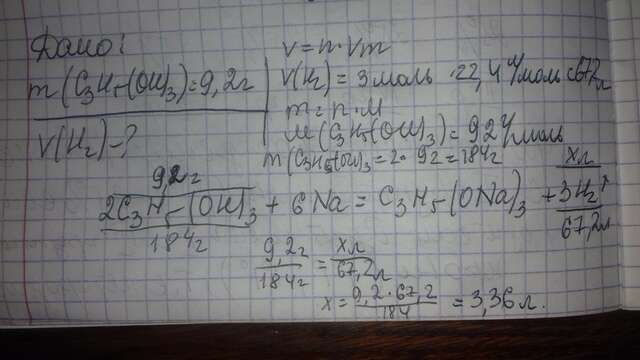 Дано:
m(C₃H₅(OH)₃)=9,2г
V(H₂)-?
V=n·Vm
V(H₂)=3моль·22,4 л/моль=67,2л
m=n·M
M(C₃H₅(OH)₃)=92 г/моль
m(C₃H₅(OH)₃=2·92=184г
9,2г xл
2C₃H₅(OH)₃ + 6Na = C₃H₅(ONa)₃ + 3H₂↑
184г 67,2л
9,2г/184г = xл/67,2л
x=9,2·67,2/184 = 3,36л.